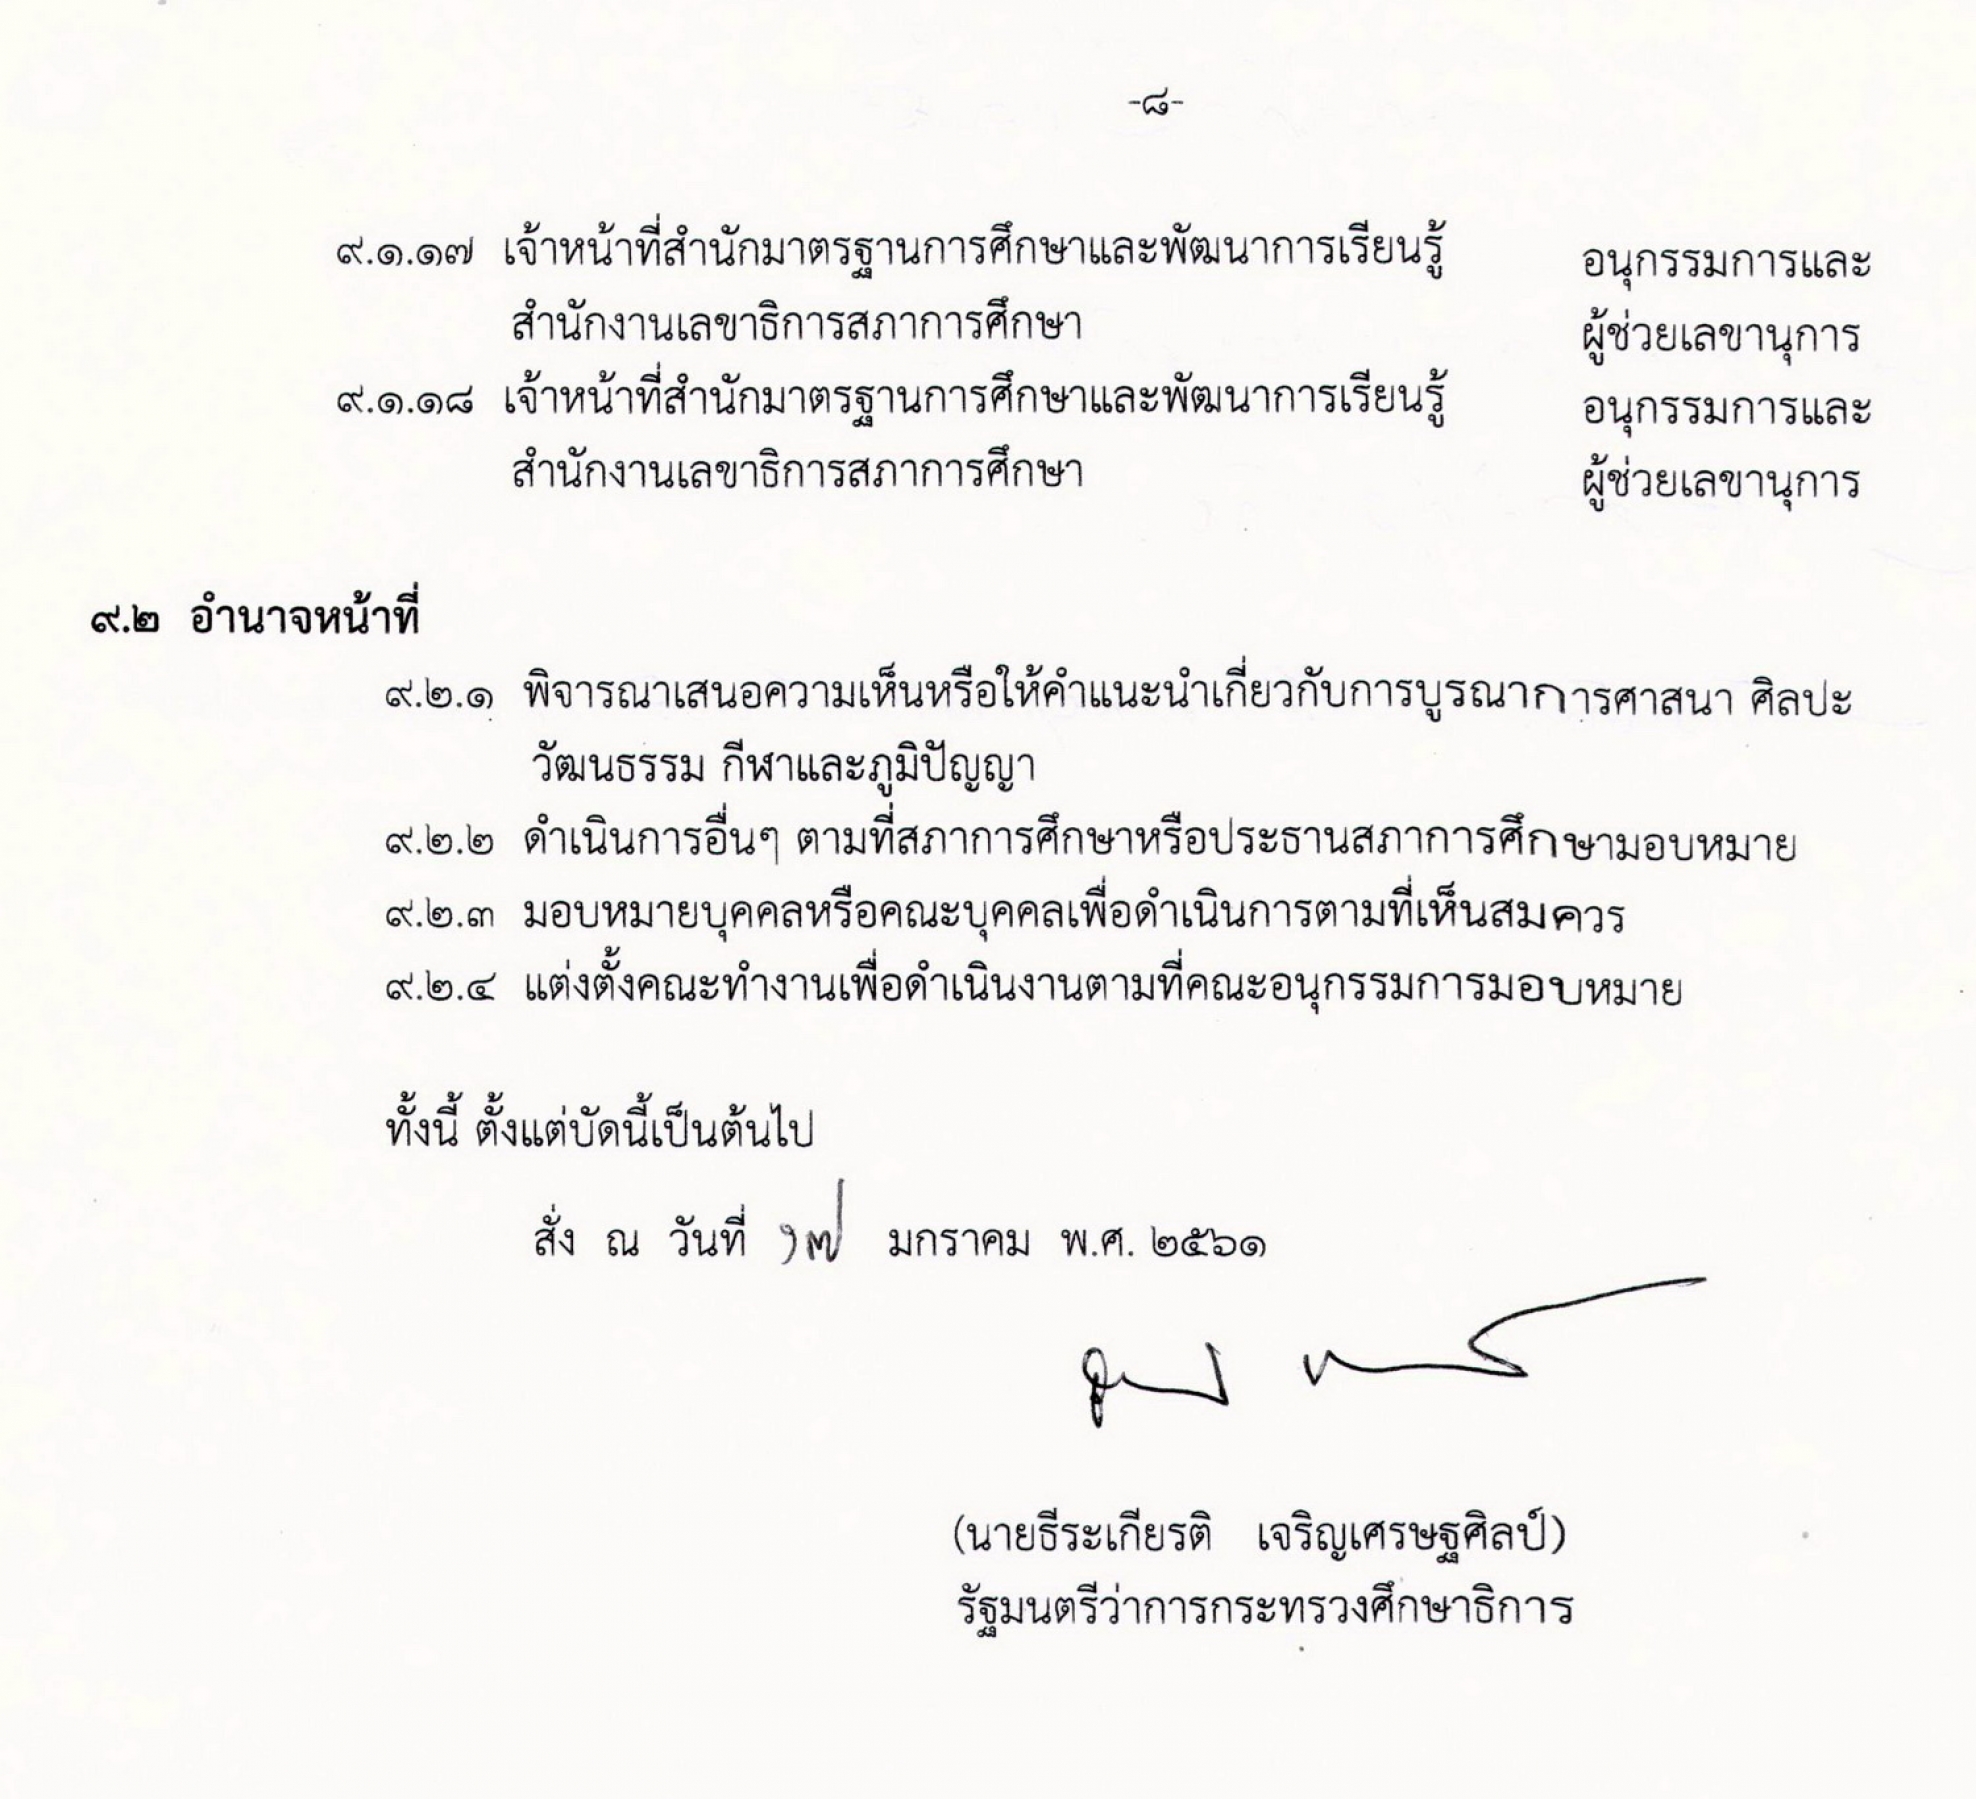 -๘-
๙.๑.๑๗ เจ้าหน้าที่สำนักมาตรฐานการศึกษาและพัฒนาการเรียนรู้ อนุกรรมการและ
สำนักงานเลขาธิการสภาการศึกษา ผู้ช่วยเลขานุการ
๙.๑.๑๘ เจ้าหน้าที่สำนักมาตรฐานการศึกษาและพัฒนาการเรียนรู้ อนุกรรมการและ
สำนักงานเลขาธิการสภาการศึกษา ผู้ช่วยเลขานุการ
๙.๒ อำนาจหน้าที่
๙.๒.๑ พิจารณาเสนอความเห็นหรือให้คำแนะนำเกี่ยวกับการบูรณาการศาสนา ศิลปะ
วัฒนธรรม กีฬาและภูมิปัญญา
๙.๒.๒ ดำเนินการอื่นๆ ตามที่สภาการศึกษาหรือประธานสภาการศึกษามอบหมาย
๙.๒.๓ มอบหมายบุคคลหรือคณะบุคคลเพื่อดำเนินการตามที่เห็นสมควร
๙.๒.๔ แต่งตั้งคณะทำงานเพื่อดำเนินงานตามที่คณะอนุกรรมการมอบหมาย
ทั้งนี้ ตั้งแต่บัดนี้เป็นต้นไป
สั่ง ณ วันที่ ๑๗ มกราคม พ.ศ. ๒๕๖๑
(นายธีระเกียรติ เจริญเศรษฐศิลป์)
รัฐมนตรีว่าการกระทรวงศึกษาธิการ